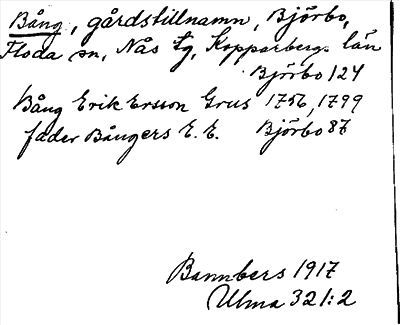 Bång, gårdstillnamn, Björbo,
Floda sn, Nås tg, Kopparbergs län
Björbo 124
Bång Erik Ersson Grus 1756, 1799
fader Bångers E. E. Björbo 87
Bannbers 1917
Ulma 321:2